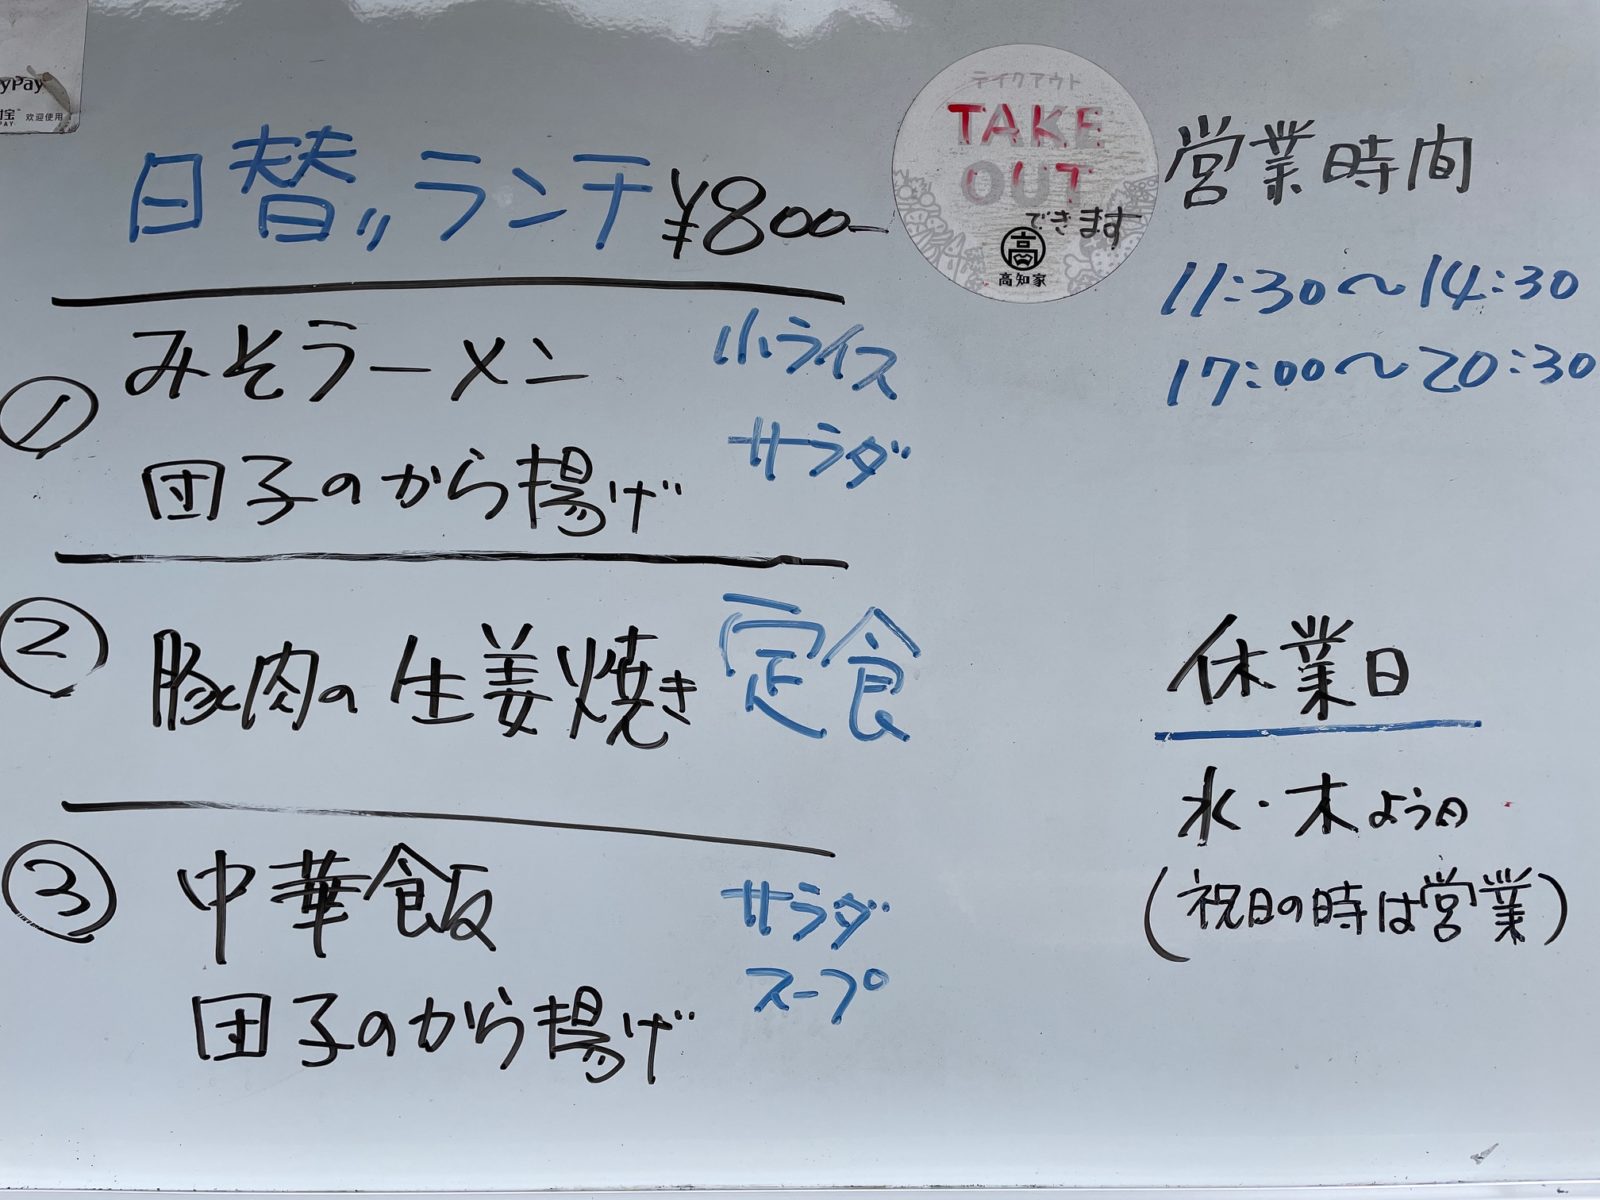 yPay
欢迎使用
日替〃ランチ ¥800-
① みそラーメン 小ライス
サラダ
団子のから揚げ
② 豚肉の生姜焼き 定食
③ 中華飯 サラダ
スープ
団子のから揚げ
テイクアウト
TAKE
OUT
できます
高
高知家
営業時間
11:30〜14:30
17:00〜20:30
休業日
水・木よう日
(祝日の時は営業)